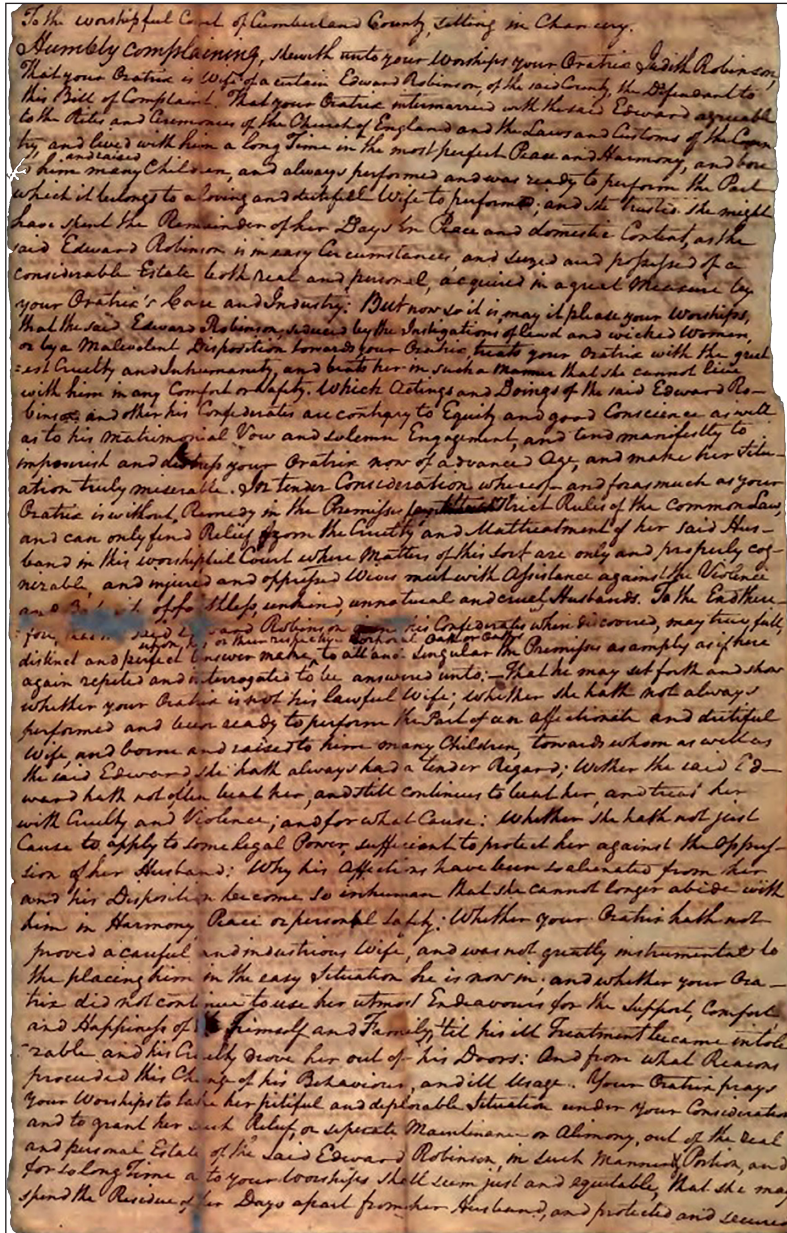 To the worshipful Court of Cumberland County, sitting in Chancery.
Humbly complaining, sheweth unto your Worships your Oratrix Judith Robinson,
That your Oratrix is Wife of a certain Edward Robinson, of the said County, the Defendant to
this Bill of Complaint. That your Oratrix intermarried with the said Edward agreeable
to the Rites and Ceremonies of the Church of England and the Laws and Customs of the Coun
try, and lived with him a long Time in the most perfect Peace and Harmony, and bore
and raised
him many Children, and always performed and was ready to perform the Part
which it belongs to a loving and dutiful Wife to perform; and she trusted she might
have spent the Remainder of her Days in Peace and domestic Content, as the
said Edward Robinson is in easy Circumstances, and seized and possessed of a
considerable Estate both real and personal, acquired in a great Measure by
your Oratrix's Care and Industry: But now so it is may it please your Worships,
that the said Edward Robinson, seduced by the Instigations of lewd and wicked Women,
or by a Malevolent Disposition towards your Oratrix, treats your Oratrix with the great
-est Cruelty and Inhumanity, and beats her in such a manner that she cannot live
with him in any Comfort or safety. Which Actings and Doings of the said Edward Ro-
binson and other his Confederates are contrary to Equity and good Conscience as well
as to his matrimonial Vow and solemn Engagement, and tend manifestly to
impoverish and distress your Oratrix now of advanced Age, and make her Situ-
ation truly miserable. In tender Consideration whereof and forasmuch as your
Oratrix is without Remedy in the Premisses strict Rules of the common Law,
and can only find Relief from the Cruelty and Maltreatment of her said Hus-
band in this worshipful Court where Matters of this sort are only and properly cog-
nizable, and injured and oppressed Wives meet with Assistance against the Violence
and of faithless, unkind, unnatural and cruel Husbands. To the End there-
fore, Robinson his Confederates when discovered, may true, full,
upon his or their respective corporal Oath or Oaths
distinct and perfect Answer make, to all and singular the Premisses as amply as if here
again repeted and interrogated to be answered unto:— That he may set forth and show
whether your Oratrix is not his lawful Wife; whether she hath not always
performed and been ready to perform the Part of an affectionate and dutiful
Wife, and borne and raised to him many Children, towards whom as well as
the said Edward she hath always had a tender Regard; Wether the said Ed-
ward hath not often beat her, and still continues to beat her, and treat her
with Cruelty and Violence; and for what Cause: Whether she hath not just
Cause to apply to some legal Power, sufficient to protect her against the Oppres-
sion of her Husband: Why his Affections have been so alienated from her
and his Disposition become so inhuman that she cannot longer abide with
him in Harmony Peace or personal safety: Whether your Oratrix hath not
proved a careful and industrious Wife, and was not greatly instrumental to
the placing him in the easy Situation he is now in: and whether your Ora-
trix did not continue to use her utmost Endeavours for the Support, Comfort
and Happiness of himself and Family, 'til his ill Treatment became intole
-rable and his Cruelty drove her out of his Doors: And from what Reasons
proceeded this Change of his Behaviour, and ill Usage. Your Oratrix prays
your Worships to take her pitiful and deplorable Situation under your Consideration
and to grant her such Relief, or seperate Maintinance or Alimony, out of the real
and personal Estate of the said Edward Robinson, in such Manner & Portion, and
for so long Time as to your Worships shall seem just and equitable, that she may
spend the Residue of her Days apart from her Husband, and protected and secured